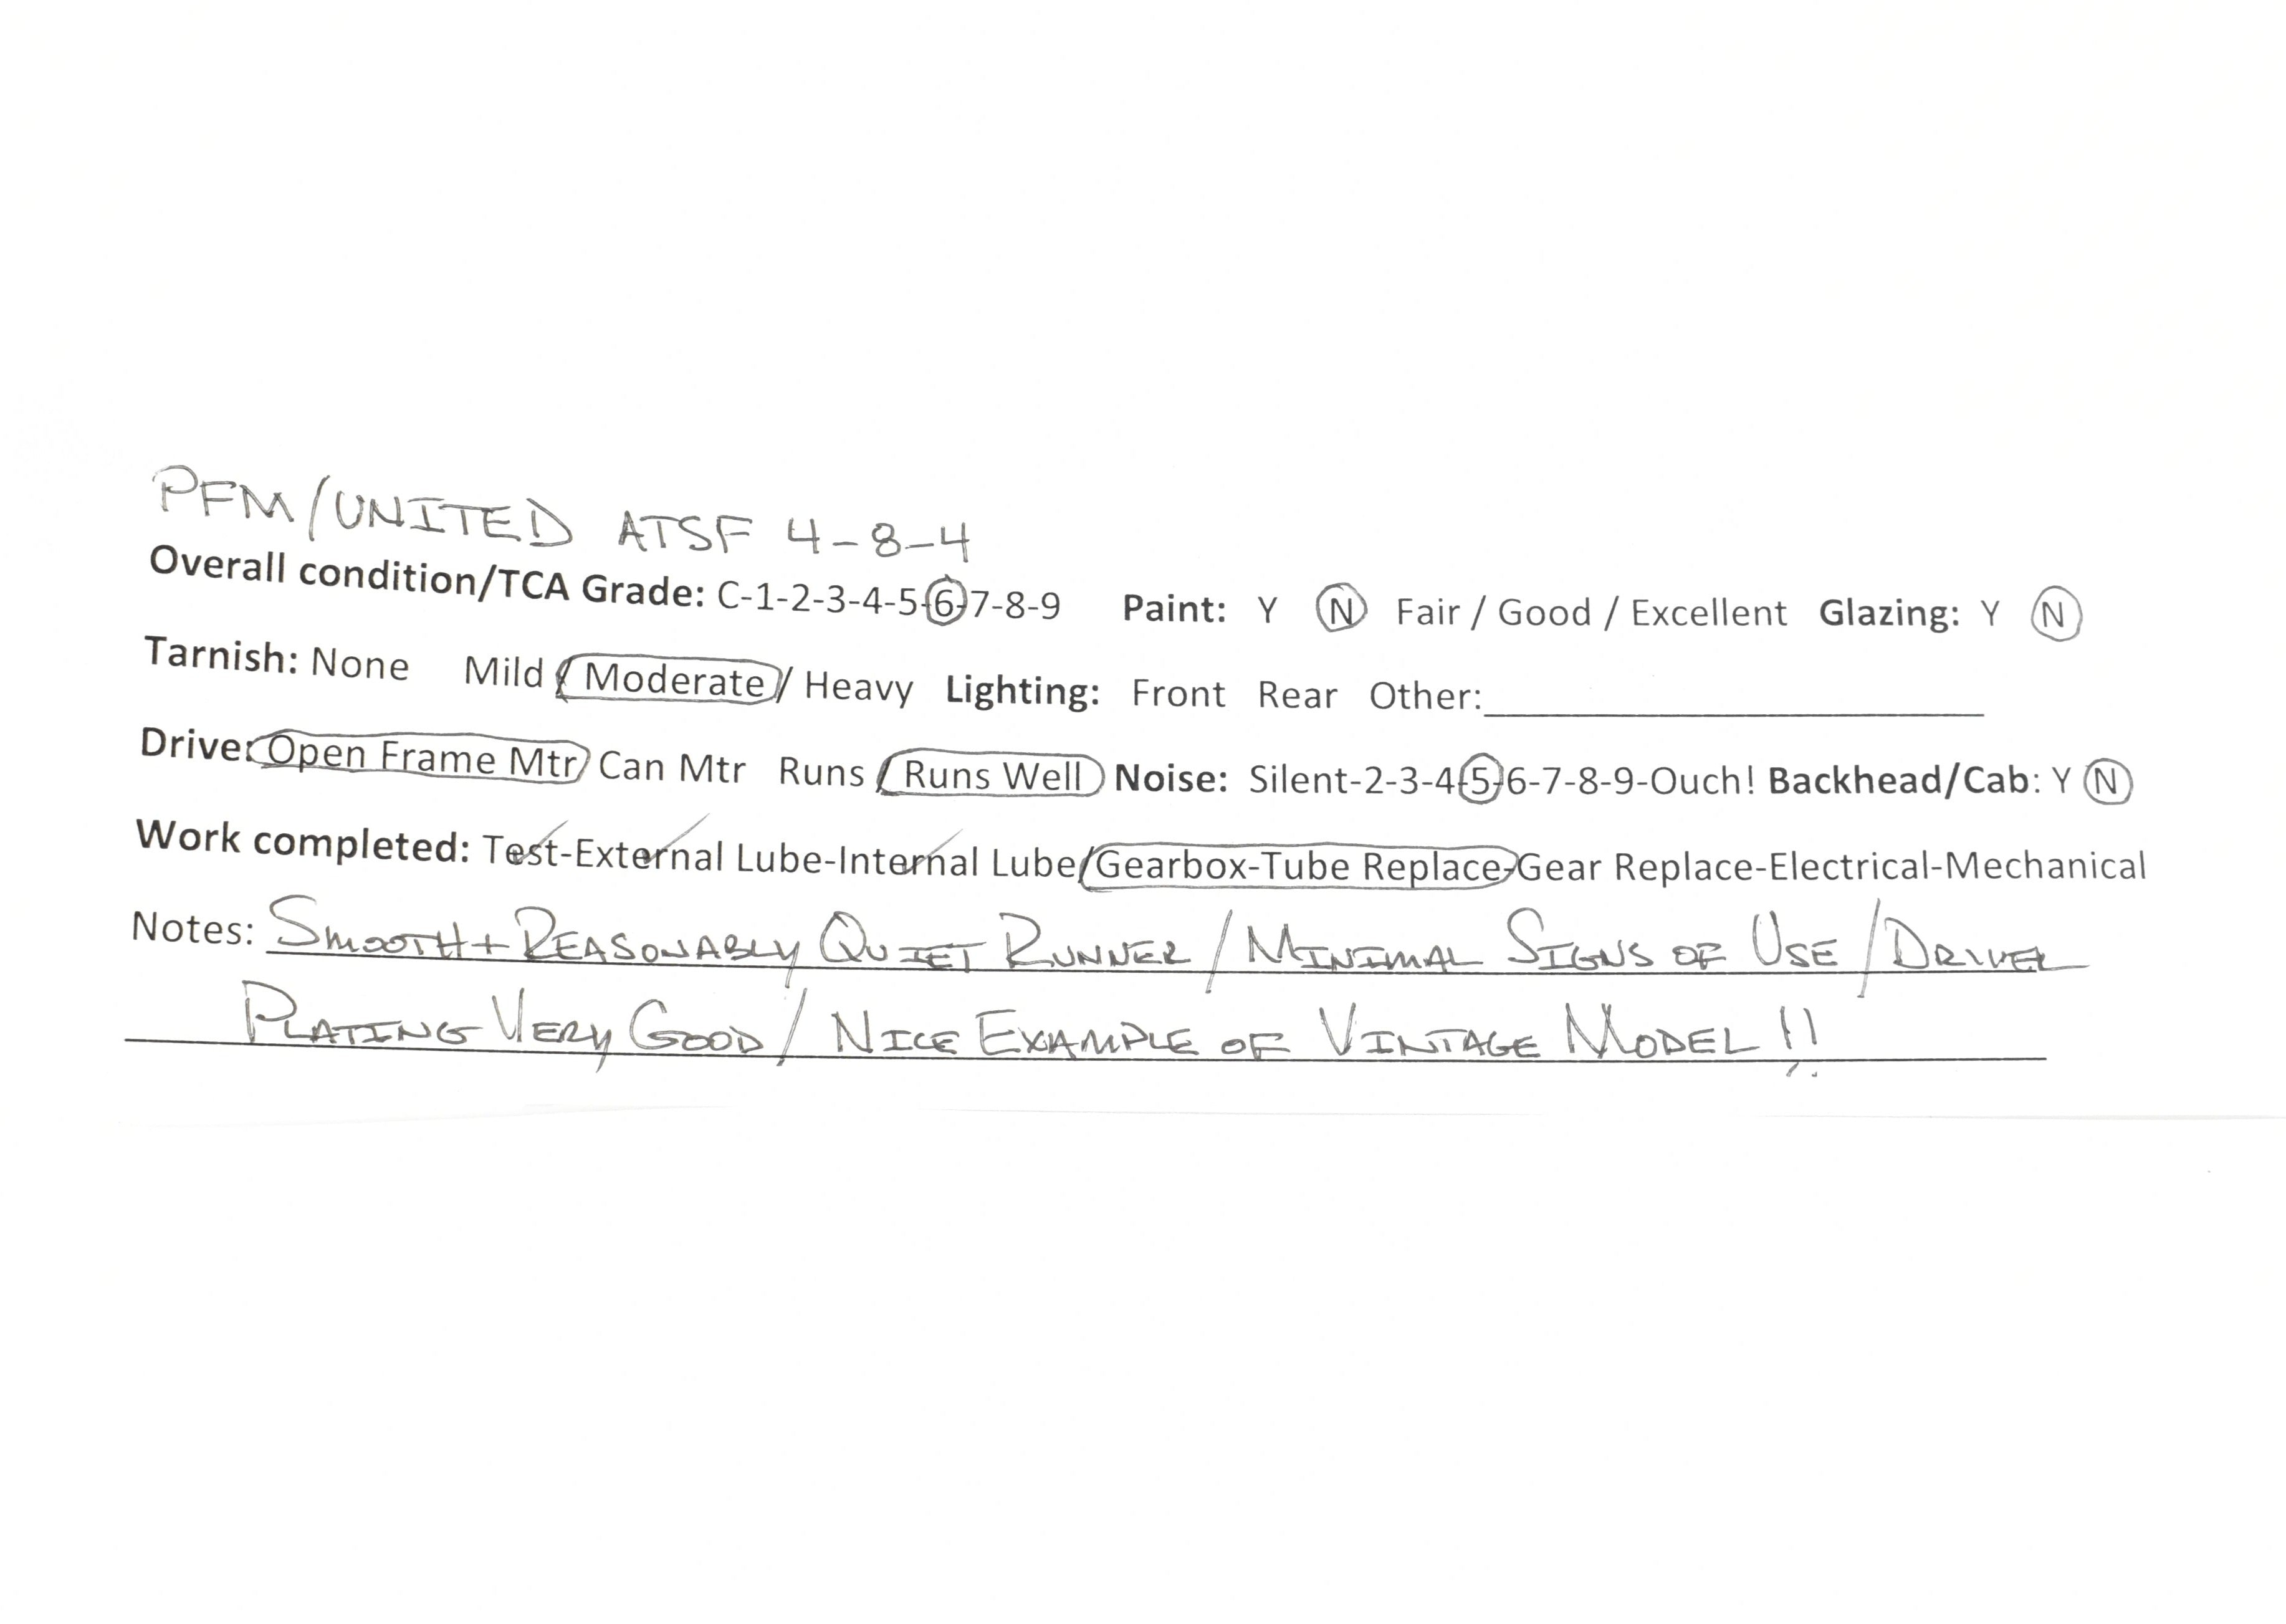 PFM/UNITED ATSF 4-8-4
Overall condition/TCA Grade: C-1-2-3-4-5-6-7-8-9 Paint: Y N Fair / Good / Excellent Glazing: Y N
Tarnish: None Mild / Moderate / Heavy Lighting: Front Rear Other:
Drive: Open Frame Mtr Can Mtr Runs / Runs Well Noise: Silent-2-3-4-5-6-7-8-9-Ouch! Backhead/Cab: Y N
Work completed: Test-External Lube-Internal Lube/Gearbox-Tube Replace-Gear Replace-Electrical-Mechanical
Notes: SMOOTH + REASONABLY QUIET RUNNER / MINIMAL SIGNS OF USE / DRIVER
PLATING VERY GOOD / NICE EXAMPLE OF VINTAGE MODEL !!